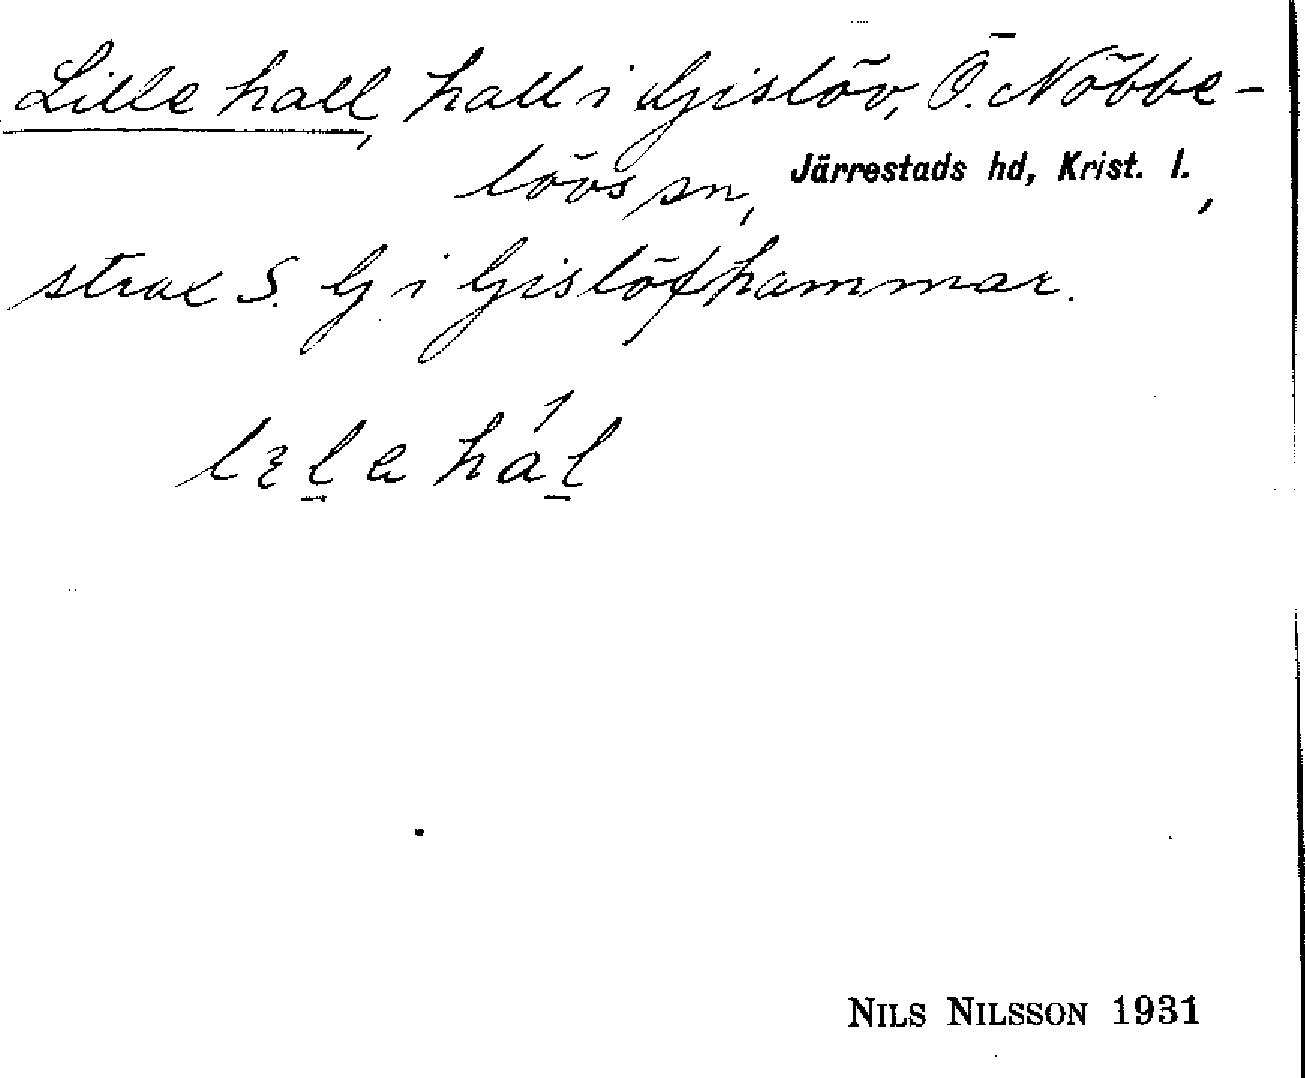 Lille hall, hall i Gislöv, Ö. Nöbbe-
lövs sn, Järrestads hd, Krist. l.,
strax S. G i Gislöfhammar.
lɛla hál
NILS NILSSON 1931